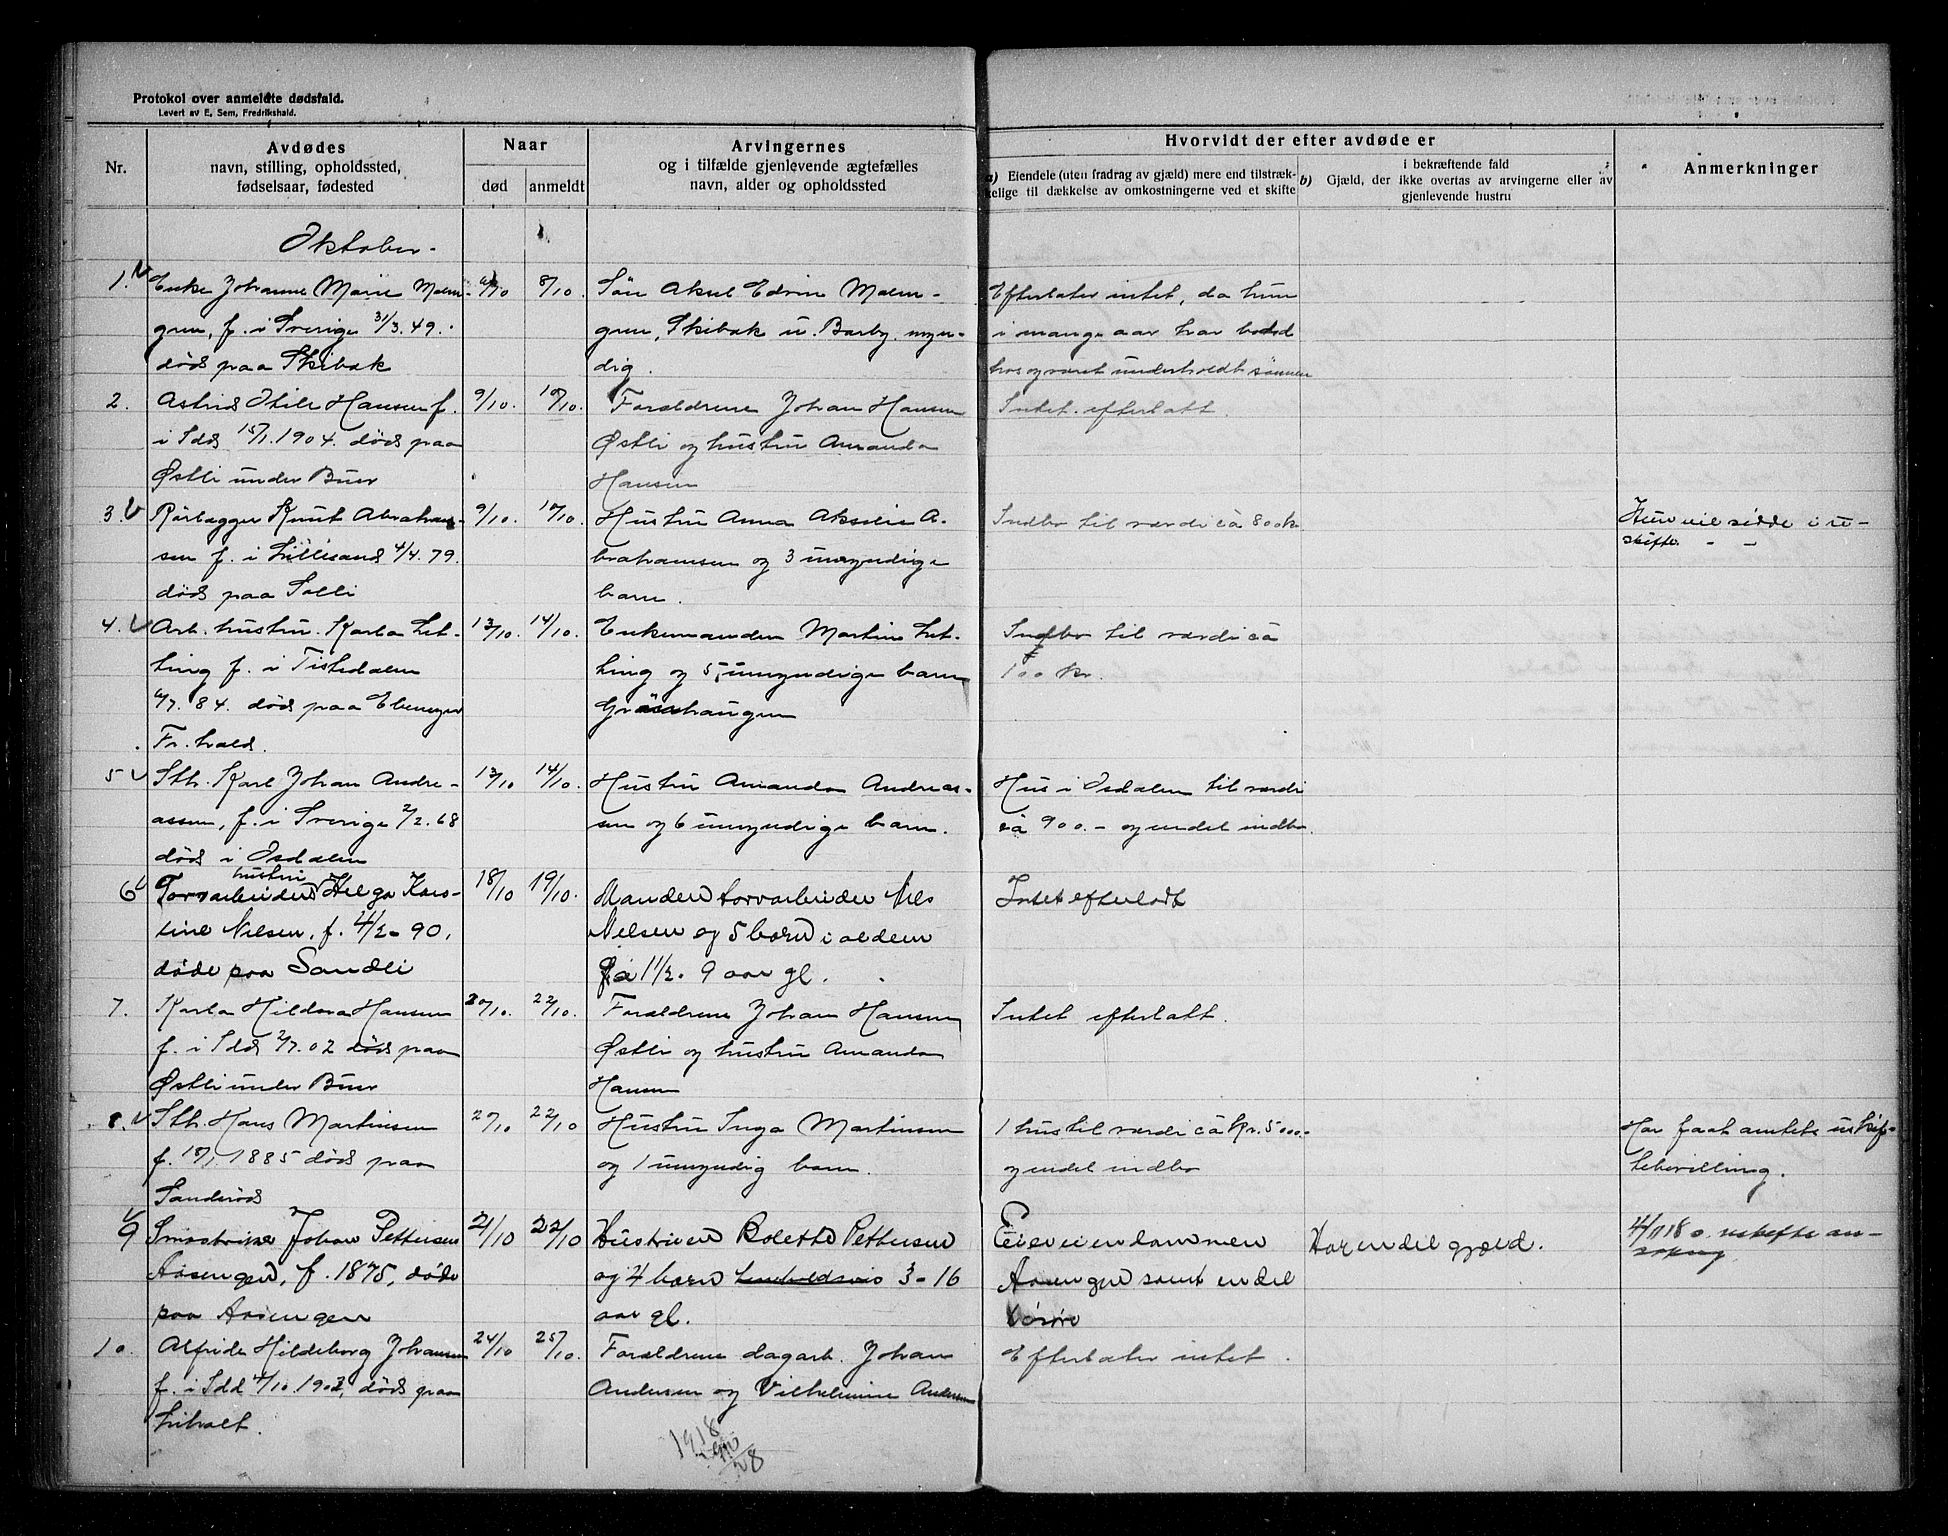 Protokol over anmeldte dødsfald.
Levert av E. Sem, Fredrikshald.
Nr.
Avdødes
navn, stilling, opholdssted,
fødselsaar, fødested
Naar
død
anmeldt
Arvingernes
og i tilfælde gjenlevende ægtefælles
navn, alder og opholdssted
Hvorvidt der efter avdøde er
a) Eiendele (uten fradrag av gjæld) mere end tilstræk-
kelige til dækkelse av omkostningerne ved et skifte
i bekræftende fald
b) Gjæld, der ikke overtas av arvingerne eller av
gjenlevende hustru
Anmerkninger
Oktober.
1. Enke Johanne Marie Malm-
gren, f. i Sverige 31/3. 49.
død paa Skibak
6/10
8/10.
Sön Aksel Edvin Malm-
gren, Skibak u. Barby. myn-
dig.
Efterlater intet, da hun
i mange aar har bodd
hos og været underholdt sønnen
2. Astrid Otilie Hansen f.
i Idd 15/1. 1904. død paa
Østli under Buer
9/10.
10/10.
Forældrene Johan Hansen
Østli og hustru Amanda
Hansen
Intet efterlatt.
3. Rørlægger Knut Abraham-
sen f. i Lillesand 4/4. 79.
død paa Solli
9/10.
10/10.
Hustru Anna Akselie A-
brahamsen og 3 umyndige
barn.
Indbo til værdi ca 800 kr
Hun vil sidde i u-
skifte. - -
4. Arb. hustru. Karla Let-
ling f. i Tistedalen
6/7. 84. død paa Ebenezer
Fr.hald.
13/10.
14/10.
Enkemanden Martin Let-
ling og 5 umyndige barn
Gräsehaugen
Indbo til værdi ca
100 kr.
5 Sth. Karl Johan Andre-
assen, f. i Sverige 2/2. 68
død i Osdalen
13/10
14/10.
Hustru Amanda Andreas-
sen og 6 umyndige barn.
Hus i Osdalen til værdi
ca 900.- og endel indbo.
6 Torvarbeiders hustru Helga Kars-
tine Nilsen. f. 4/2- 90.
døde paa Sandli
18/10
19/10.
Manden torvarbeider Nils
Nilsen og 5 børn i alderen
fra 1 1/2 - 9 aar gl.
Intet efterladt
7. Karla Hildora Hansen
f. i Idd 2/7. 02 død paa
Østli under Buer
20/10.
22/10.
Forældrene Johan Hansen
Østli og hustru Amanda
Hansen
Intet efterlatt.
8. Sth. Hans Martinsen
f. 18/1 1885 død paa
Sanderöd
20/10
22/10
Hustru Inga Martinsen
og 1 umyndig barn.
1 hus til værdi ca kr. 5000.-
og endel indbo
Har faat amtets uskif-
tebevilling.
9 Johan Pettersen
Aasengen, f. 1875, døde
paa Aasengen
21/10
22/10
Hustruen Bolette Pettersen
og 4 børn 3 - 16
aar gl.
Eieeiendommen
Aasengen samt endel
løsøre
Har en del gjæld.
4/11 18 o. uskifte an-
søkning
10. Alfrida Hildeborg Johansen
f. i Idd 4/10. 1903, død paa
Liholt.
24/10
25/10.
Forældrene dagarb. Johan
Andersen og Vilhelmine Andersen
Efterlater intet.
1918